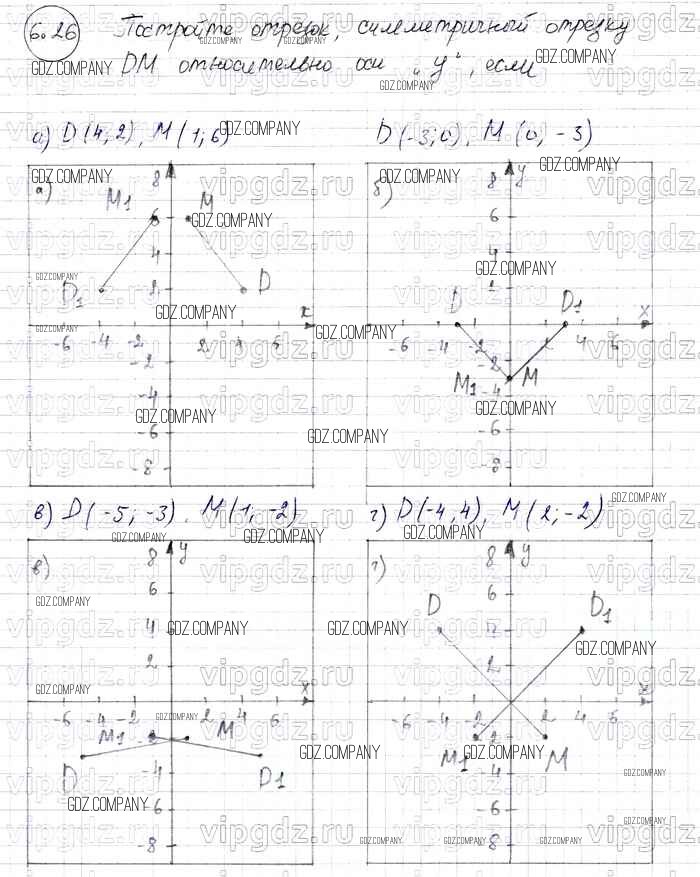 6.26 Постройте отрезок, симметричный отрезку
DM относительно оси "y", если
а) D(4,2), M(1;6)
D(-3;0), M(0,-3)
а)
M1 M
D1 D
x
8
6
4
2
-6 -4 -2 2 4 6
-2
-4
-6
-8
б)
y
D D1
x
M1 M
8
6
4
2
-6 -4 -2 2 4 6
-2
-4
-6
-8
в) D(-5;-3). M(1,-2)
г) D(-4,4), M(2;-2)
в)
y
x
M1 M
D D1
8
6
4
2
-6 -4 -2 2 4 6
-4
-6
-8
г)
y
D D1
x
M1 M
8
6
2
-6 -4 -2 2 4 6
-2
-4
-6
-8
GDZ.COMPANY
vipgdz.ru